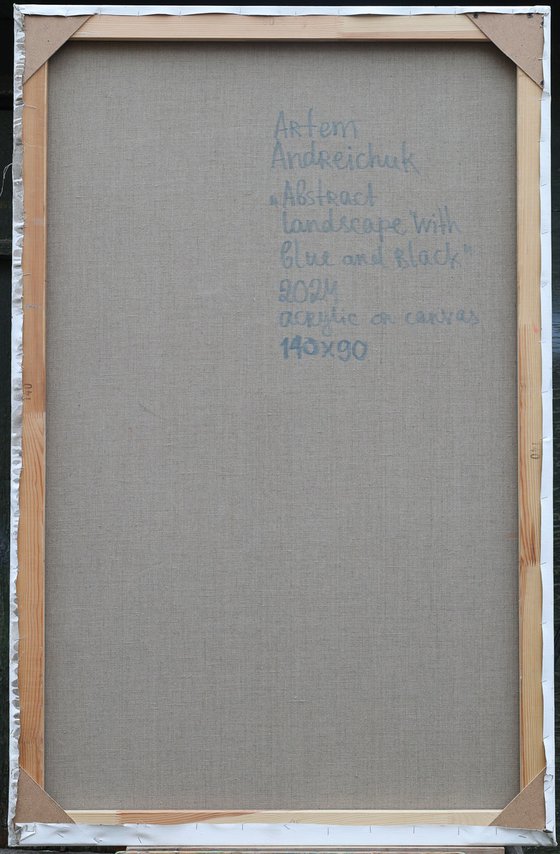 Artem
Andreichuk
„Abstract
landscape With
blue and black"
2024
acrylic on canvas
140x90
140
140